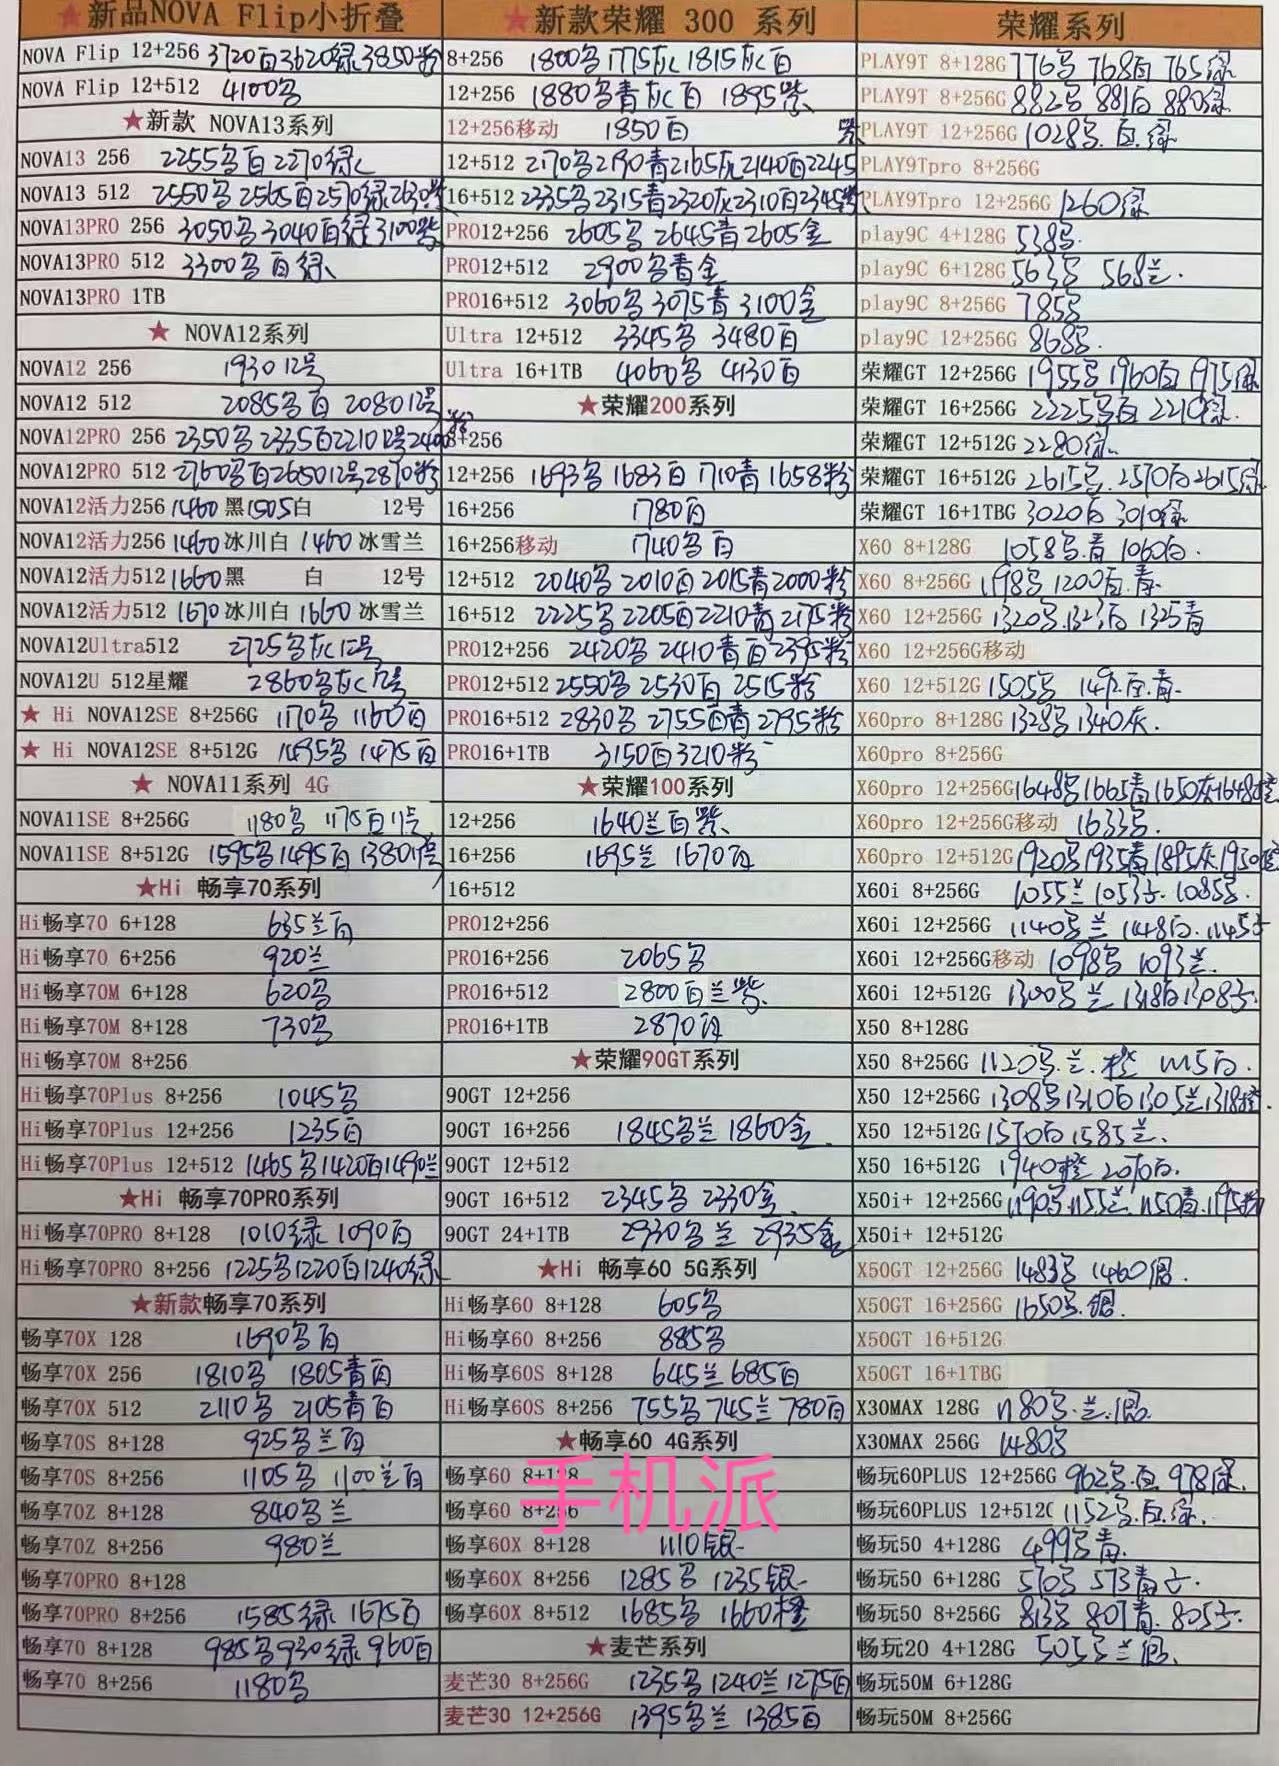 ★新品NOVA Flip小折叠
NOVA Flip 12+256 3720白3620绿3850粉
NOVA Flip 12+512 4100另
★新款 NOVA13系列
NOVA13 256 2255另白 2270绿
NOVA13 512 2550另 2565白2570绿2630紫
NOVA13PRO 256 3050另 3040白绿 3100紫
NOVA13PRO 512 3300另白绿
NOVA13PRO 1TB
★ NOVA12系列
NOVA12 256 1930 12号
NOVA12 512 2085另白 2080 12号
NOVA12PRO 256 2350另 2335白2210 12号2400粉
NOVA12PRO 512 2760另白2650 12号2870粉
NOVA12活力256 1460黑1505白 12号
NOVA12活力256 1460冰川白 1460冰雪兰
NOVA12活力512 1660黑 白 12号
NOVA12活力512 1670冰川白 1660冰雪兰
NOVA12Ultra512 2725另灰12号
NOVA12U 512星耀 2860另灰12号
★ Hi NOVA12SE 8+256G 1170另 1160白
★ Hi NOVA12SE 8+512G 1495另 1475白
★ NOVA11系列 4G
NOVA11SE 8+256G 1180另 1175白11号
NOVA11SE 8+512G 1595另1495白1380 11号
★Hi 畅享70系列
Hi畅享70 6+128 635兰白
Hi畅享70 6+256 920兰
Hi畅享70M 6+128 620另
Hi畅享70M 8+128 730另
Hi畅享70M 8+256
Hi畅享70Plus 8+256 1045另
Hi畅享70Plus 12+256 1235白
Hi畅享70Plus 12+512 1465另1420白1490兰
★Hi 畅享70PRO系列
Hi畅享70PRO 8+128 1010绿 1090白
Hi畅享70PRO 8+256 1225另1220白1240绿
★新款畅享70系列
畅享70X 128 1690另白
畅享70X 256 1810另 1805青白
畅享70X 512 2110另 2105青白
畅享70S 8+128 925另兰白
畅享70S 8+256 1105另 1100兰白
畅享70Z 8+128 840另兰
畅享70Z 8+256 980兰
畅享70PRO 8+128
畅享70PRO 8+256 1585绿 1675白
畅享70 8+128 985另930绿 960白
畅享70 8+256 1180另
★新款荣耀 300 系列
8+256 1800另1775灰1815灰白
12+256 1880另青灰白 1895紫
12+256移动 1850白
12+512 2170另2190青2165灰2140白2245紫
16+512 2335另2315青2320灰2310白2345紫
PRO12+256 2605另 2645青2605金
PRO12+512 2900另青金
PRO16+512 3060另 3075青 3100金
Ultra 12+512 3345另 3480白
Ultra 16+1TB 4060另 4130白
★荣耀200系列
8+256
12+256 1693另1683白 1710青 1658粉
16+256 1780白
16+256移动 1740另白
12+512 2040另2010白2015青2000粉
16+512 2225另2205白2210青2175粉
PRO12+256 2420另 2410青白2395粉
PRO12+512 2550另2530白 2515粉
PRO16+512 2830另 2755白青2795粉
PRO16+1TB 3150白3210粉
★荣耀100系列
12+256 1640兰白紫
16+256 1695兰 1670白
16+512
PRO12+256
PRO16+256 2065另
PRO16+512 2800白兰紫
PRO16+1TB 2870白
★荣耀90GT系列
90GT 12+256
90GT 16+256 1845另兰 1860金
90GT 12+512
90GT 16+512 2345另 2330金
90GT 24+1TB 2930另兰 2935金
★Hi 畅享60 5G系列
Hi畅享60 8+128 605另
Hi畅享60 8+256 885另
Hi畅享60S 8+128 645兰685白
Hi畅享60S 8+256 755另745兰780白
★畅享60 4G系列
畅享60 8+128
畅享60 8+256
畅享60X 8+128 1110银
畅享60X 8+256 1285另 1235银
畅享60X 8+512 1685另 1660橙
★麦芒系列
麦芒30 8+256G 1235另1240兰1275白
麦芒30 12+256G 1395另兰 1385白
荣耀系列
PLAY9T 8+128G 776另 768白 765绿
PLAY9T 8+256G 882另 881白 880绿
PLAY9T 12+256G 1028另.白.绿
PLAY9Tpro 8+256G
PLAY9Tpro 12+256G 1260绿
play9C 4+128G 538另.
play9C 6+128G 563另 568兰.
play9C 8+256G 785另
play9C 12+256G 868另.
荣耀GT 12+256G 1955另1960白1975绿
荣耀GT 16+256G 2225另白 2210绿.
荣耀GT 12+512G 2280绿
荣耀GT 16+512G 2615另.2570白2615绿
荣耀GT 16+1TBG 3020白 3010绿
X60 8+128G 1058另.青 1060白.
X60 8+256G 1198另 1200白.青.
X60 12+256G 1320另.1323白 1325青
X60 12+256G移动
X60 12+512G 1505另 1492白.青.
X60pro 8+128G 1328另1340灰.
X60pro 8+256G
X60pro 12+256G1648另1665青1650灰1648橙
X60pro 12+256G移动 1633另.
X60pro 12+512G1920另1935青1895灰1930橙
X60i 8+256G 1055兰1053 1085另.
X60i 12+256G 1140另兰 1148白.1145
X60i 12+256G移动 1098另 1093兰.
X60i 12+512G 1300另兰 1318白1308
X50 8+128G
X50 8+256G 1120另.兰.橙 1115白.
X50 12+256G 1308另1310白1305兰1318橙.
X50 12+512G1570白1585兰.
X50 16+512G 1940橙 2070白.
X50i+ 12+256G1190另.1155兰.1150青.1195粉
X50i+ 12+512G
X50GT 12+256G 1483另 1460银.
X50GT 16+256G 1650另.银.
X50GT 16+512G
X50GT 16+1TBG
X30MAX 128G 1180另.兰.银
X30MAX 256G 1480另
畅玩60PLUS 12+256G 962另.白 978绿.
畅玩60PLUS 12+512G 1152另.白.绿.
畅玩50 4+128G 499另青.
畅玩50 6+128G 570另 573青
畅玩50 8+256G 813另 807青.805
畅玩20 4+128G 505另兰银.
畅玩50M 6+128G
畅玩50M 8+256G
手机派